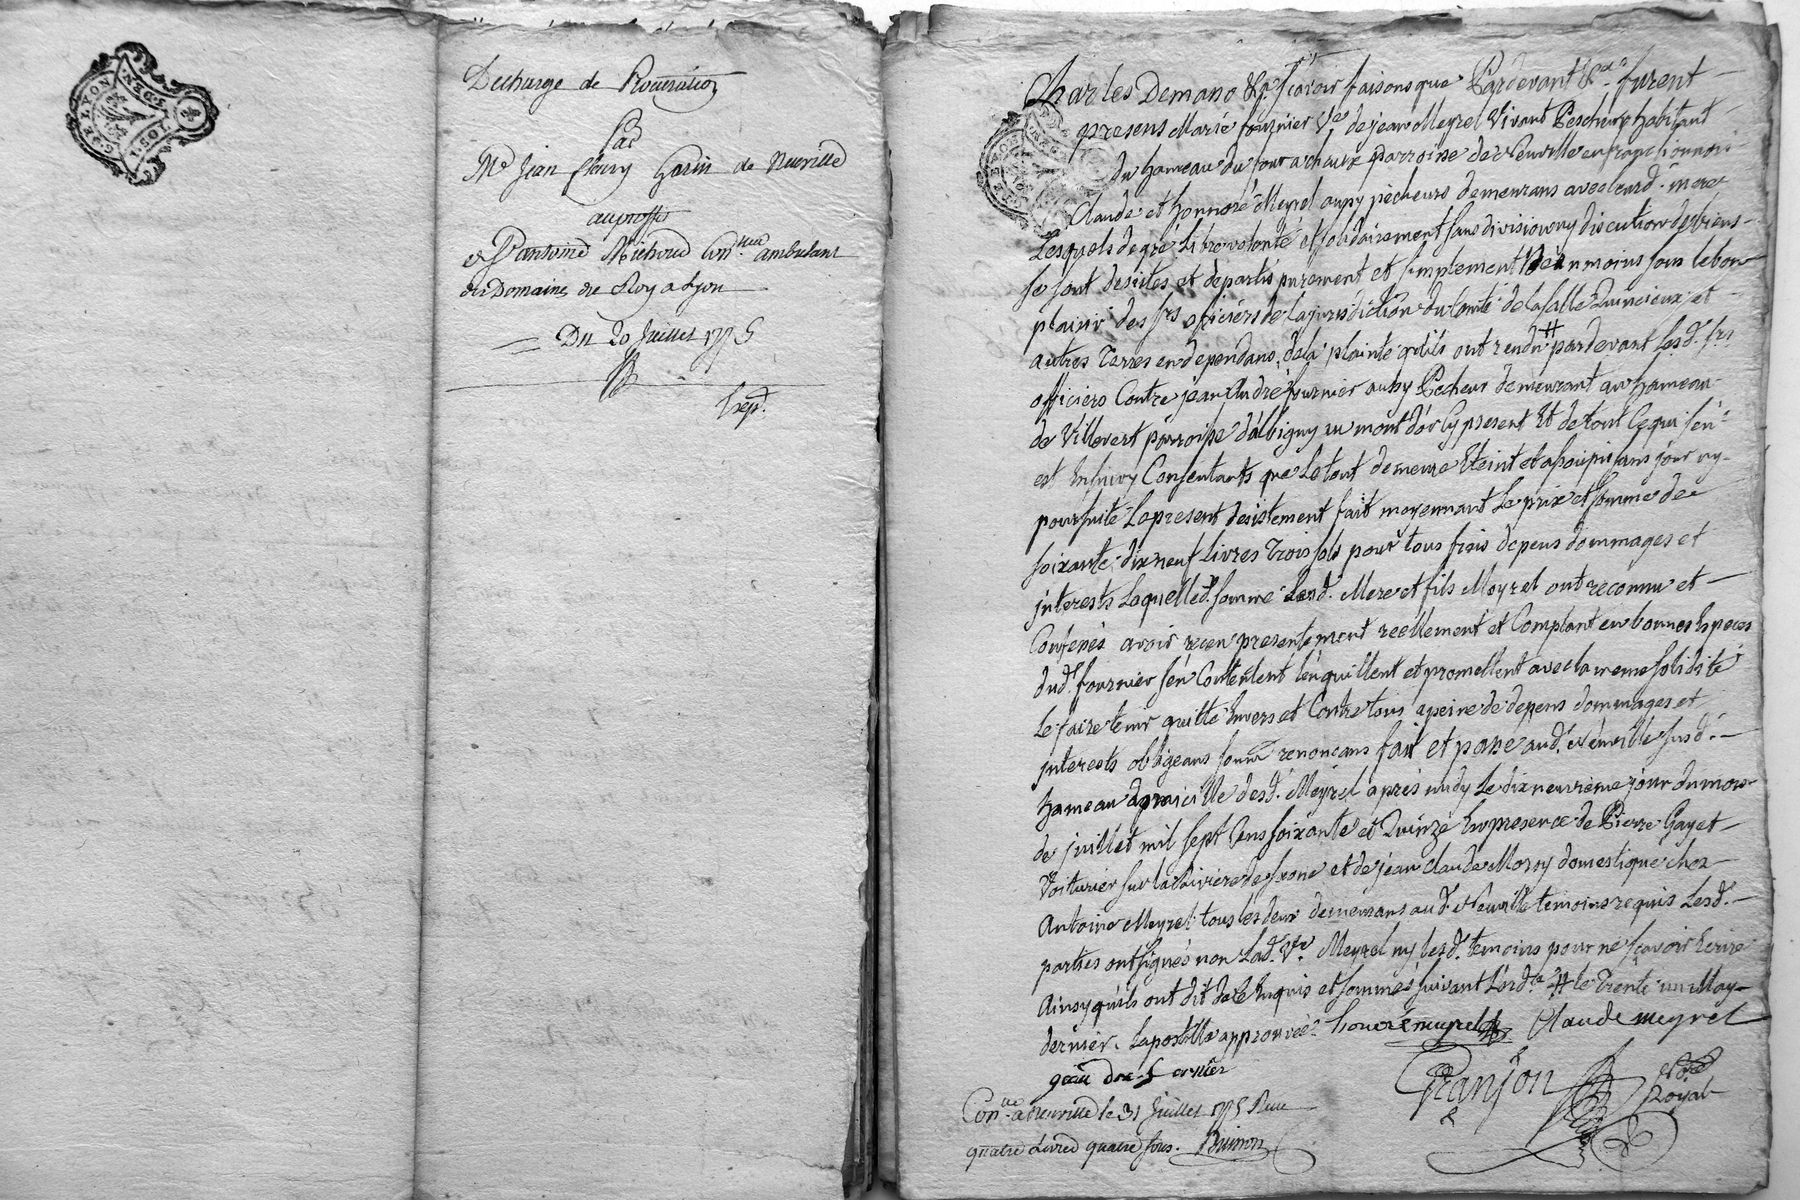 GEN. LYON
10 S. 1 DEN.
Decharge de Procuration
Par
Me Jean fleury Gorin de Neuville
au proffit
de Sr antoine Michoud Con.lleur ambulant
des Domaines du Roy a Lyon
Du 20 Juillet 1775
Exp.d
Charles Demano &a. scavoir faisons que Pardevant &a. furent
presens Marie fournier Ve. de jean Meyrel Vivant Pescheur habitant
du hameau du four a chaux parroisse de Neuville en franc lionnois
Claude et honnoré Meyrel aussy pècheurs demeurans avec leurd. mere
Lesquels de gré Libre volonté et solidairement sans division ny discution de biens
se sont desistés et departis purement et simplement Néanmoins sous le bon
plaisir des srs officiers de la jurisdiction du Comté de la salle Quincieux et
autres Terres en dependans, de la plainte qu'ils ont rendu # pardevant Lesd. srs
officiers Contre jean André fournier aussy Pècheur demeurant au hameau
de Villevert parroisse d'albigny au mont d'or Cy present Et de tout Ce qui s'en
est Ensuivy Consentants que Le tout demeure Eteint et assoupi sans jour ny
poursuite La present desistement fait moyennant Le prix et somme de
soixante dix neuf Livres Trois sols pour tous frais depens dommages et
jnterests Laquelled. somme Lesd. Mere et fils Meyrel ont reconnu et
Confessés avoir recu presentement reéllement et Comptant en bonnes Especes
dud. fournier s'en Contentent l'en quittent et promettent avec la meme solidité
Le faire tenir quitte Envers et Contre tous a peine de depens dommages et
jnterests obligeans soum. renoncans fait et passé aud. Neuville susd.
hameau domicille desd. Meyrel après midy Le dix neuvieme jour du mois
de juillet mil sept Cens soixante et Quinze En presence de Pierre Gayet
Voiturier sur la Riviere de saone et de jean Claude Morny domestique chez
Antoine Meyrel tous les deux demeurans aud. Neuville temoins requis Lesd.
parties ont signés non Lad. Ve. Meyrel ny lesd. temoins pour ne scavoir Ecrire
Ainsy qu'ils ont dit de ce Enquis et sommés suivant L'ord.ce # le Trente un May
dernier. Lapostille approuvée. honorémeyrel Claude meyrel
Granjon
Royal
Con.lle a Neuville le 31 Juillet 1775 Recu
quatre Livres quatre sous.